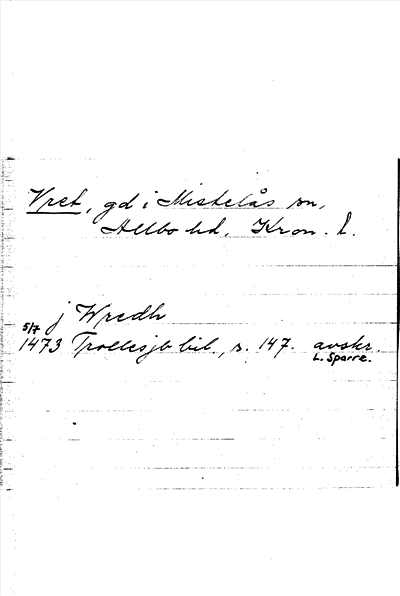 Vret, gd i Mistelås sn,
Allbo hd, Kron. l.
j Wredh
5/7
1473 Trollesjb bil., s. 147. avskr.
L. Sparre.